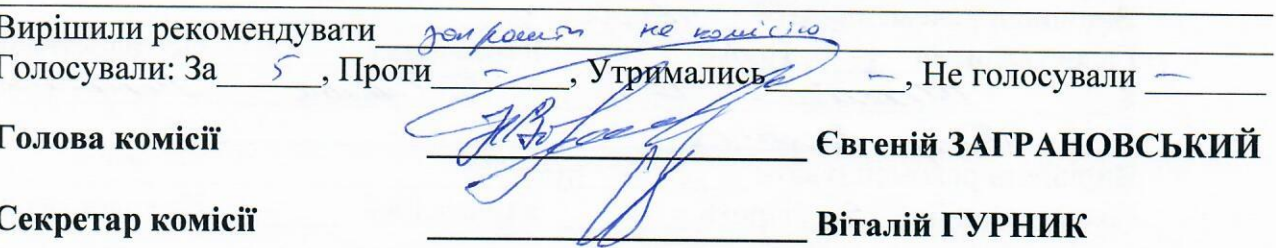 Вирішили рекомендувати запросити на комісію
Голосували: За 5, Проти -, Утримались -, Не голосували -
Голова комісії Євгеній ЗАГРАНОВСЬКИЙ
Секретар комісії Віталій ГУРНИК